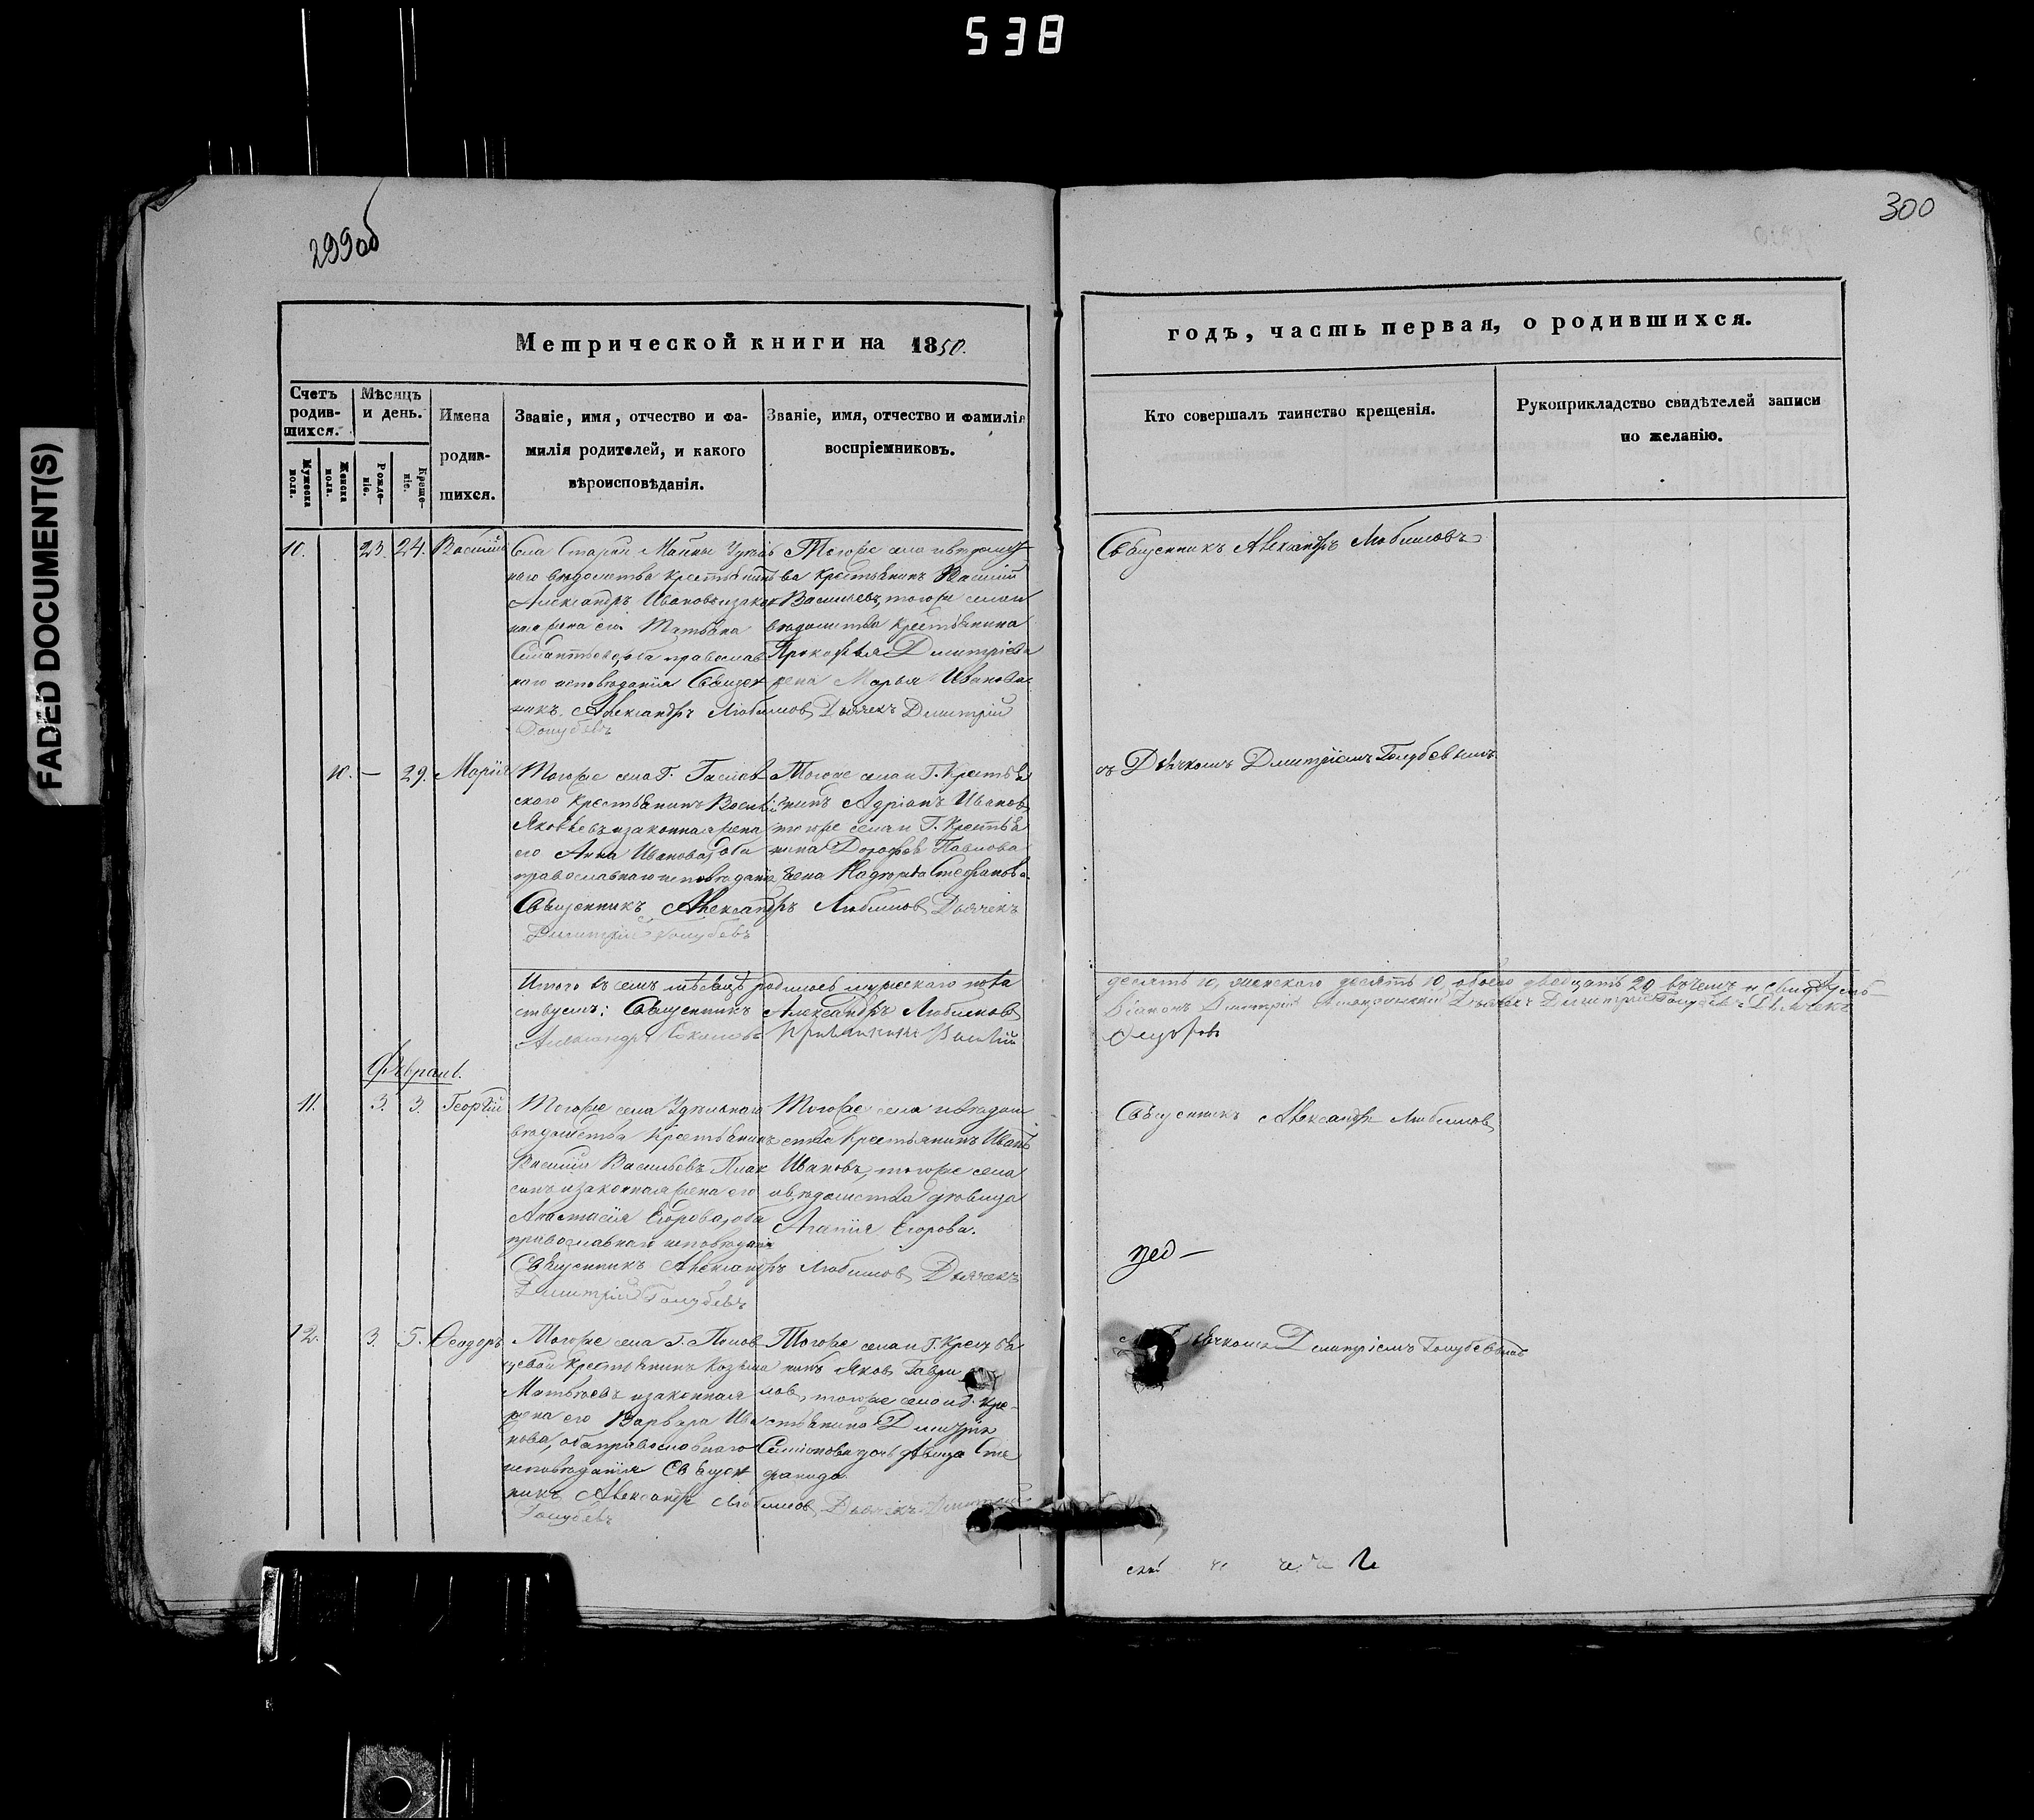 538
FADED DOCUMENT(S)
299об
300
Метрической книги на 1850.
годъ, часть первая, о родившихся.
Счетъ родившихся.
Мужеска пола.
Женска пола.
Мѣсяцъ и день.
Рожденіе.
Крещеніе.
Имена родившихся.
Званіе, имя, отчество и фамилія родителей, и какого вѣроисповѣданія.
Званіе, имя, отчество и фамилія воспріемниковъ.
Кто совершалъ таинство крещенія.
Рукоприкладство свидѣтелей записи по желанію.
10. 23. 24. Василій
Села Старой Майны Удѣль
наго вѣдомства крестьянинъ
Александръ Ивановъ и закон
ная жена его Татьяна
оба православ
наго исповѣданія Священ
никъ Александръ Любимовъ Дьячекъ Димитрій
Голубевъ
Тогоже села и вѣдомст
ва крестьянинъ Василій
Васильевъ, тогоже села и
вѣдомства крестьянина
Прокофья Димитріева
жена Марья Иванова
Священникъ Александръ Любимовъ
10. — 29. Марія
Тогоже села Г.
скаго крестьянинъ Василій
Яковлевъ и законная жена
его Анна Иванова, оба
православнаго исповѣданія
Священникъ Александръ Любимовъ Дьячекъ
Димитрій Голубевъ
Тогоже села и Г. Крестья
нинъ Адріанъ Иванов
тогоже села и Г. Крестья
нина Дорофея Павлова
жена Надежда Стефанова
съ Дьячкомъ Димитріемъ Голубевымъ
Итого въ семъ мѣсяцѣ родилось мужескаго пола
десять 10, женскаго десять 10, обоего двадцать 20, въ чемъ и свидѣтель-
ствуемъ: Священникъ Александръ Любимовъ
Діаконъ Димитрій Дьячекъ Димитрій Голубевъ Дьячекъ
Александръ Василій
Февраль.
11. 3. 3. Георгій
Тогоже села Удѣльнаго
вѣдомства Крестьянинъ
Василій Васильевъ Плак
синъ и законная жена его
Анастасія Егорова, оба
православнаго исповѣданія
Священникъ Александръ Любимовъ Дьячекъ
Димитрій Голубевъ
Тогоже села и вѣдом
ства Крестьянинъ Иванъ
Ивановъ, тогоже села
и вѣдомства дѣвица
Агапія Егорова.
Священникъ Александръ Любимовъ
12. 3. 5. Ѳеодоръ
Тогоже села Г. Попов
цевой крестьянинъ Козьма
Матвѣевъ и законная
жена его Варвара Ива
нова, оба православнаго
исповѣданія Священ
никъ Александръ Любимовъ Дьячекъ Димитрій
Голубевъ
Тогоже села и Г. Крестья
нинъ Яковъ Гаври
лов, тогоже села и Г. Кре-
стьянина Димитрія
Симіонова дочь дѣвица Сте
фанида
Дьячкомъ Димитріемъ Голубевымъ